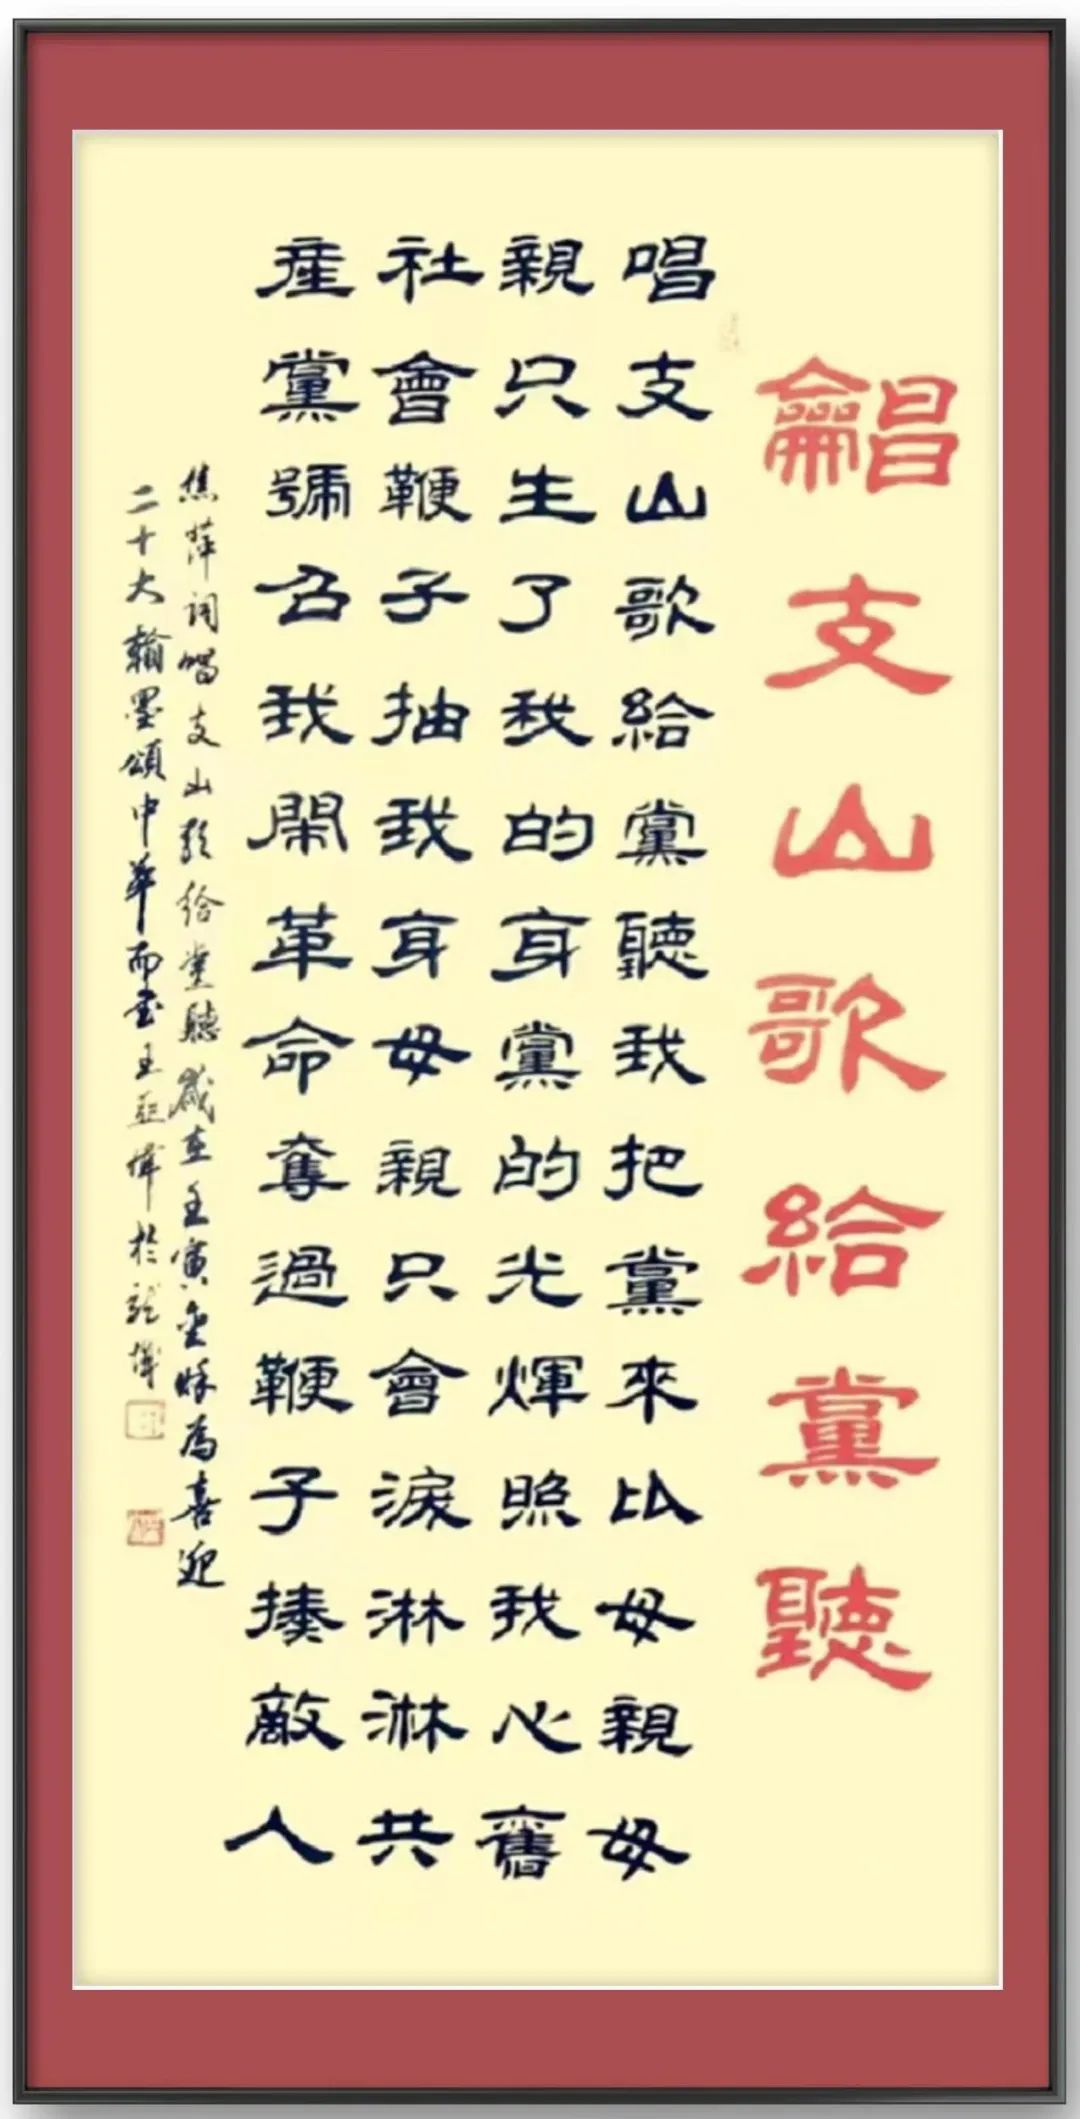 龠昌支山歌給黨聽
唱支山歌給黨聽我把黨來比母親母
親只生了我的身黨的光輝照我心舊
社會鞭子抽我身母親只會淚淋淋共
産黨號召我閙革命奪過鞭子揍敵人
焦萍詞唱支山歌給党聽歲在壬寅金秋為喜迎
二十大翰墨頌中華而書王亞偉於龍城